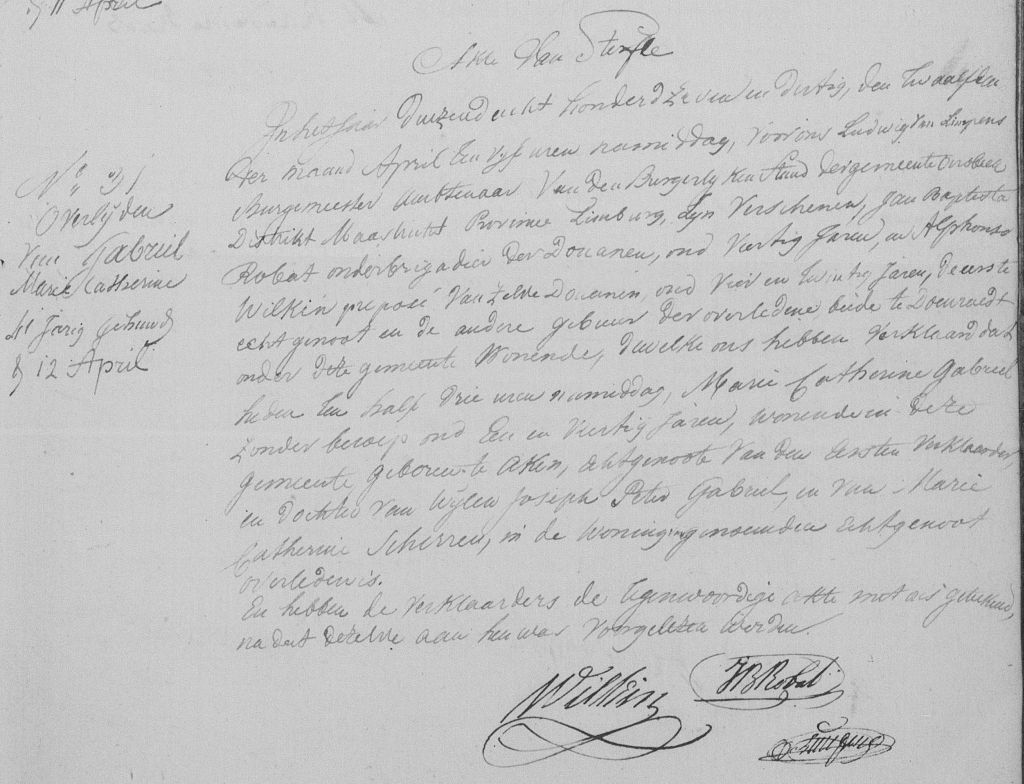 9 11 April
Akte Van Sterfte
In het Jaar Duizend acht honderd Zeven en dertig, den twaalfden
der maand April Een vyf uren namiddag, voor ons Ludwig Van Limpens
Burgemeester Ambtenaar Van den Burgerlyken Stand der gemeente Oirsbeek
Distrikt Maastricht Provincie Limburg, Zyn Verschenen, Jan Baptista
Robat onderbrigadier der Douanen, oud Viertig Jaren, en Alphonso
Wilkin preposé Van Zelve Douanen, oud Vier en twintig Jaren, de eerste
echtgenoot en de andere gebuur der overledene beide te Doenraedt
onder deze gemeente Wonende, dewelke ons hebben Verklaard dat
heden Een half drie uren namiddag, Marie Catherine Gabriel
Zonder beroep oud Een en Viertig Jaren, wonende in deze
gemeente geboren te Aken, echtgenoote Van den Eersten Verklaarder
en Dochter Van Wylen Joseph Peter Gabriel, en Van Marie
Catherine Scherren, in de woning van genoemden Echtgenoot
overleden is.
En hebben de Verklaarders de tegenwoordige akte met ons getekend,
na dat dezelve aan hen was Voorgelezen worden.
N° 31
Overlyden
Van Gabriel
Marie Catherine
41 Jarig gehuwd
9 12 April
Wilkin
JB Robat